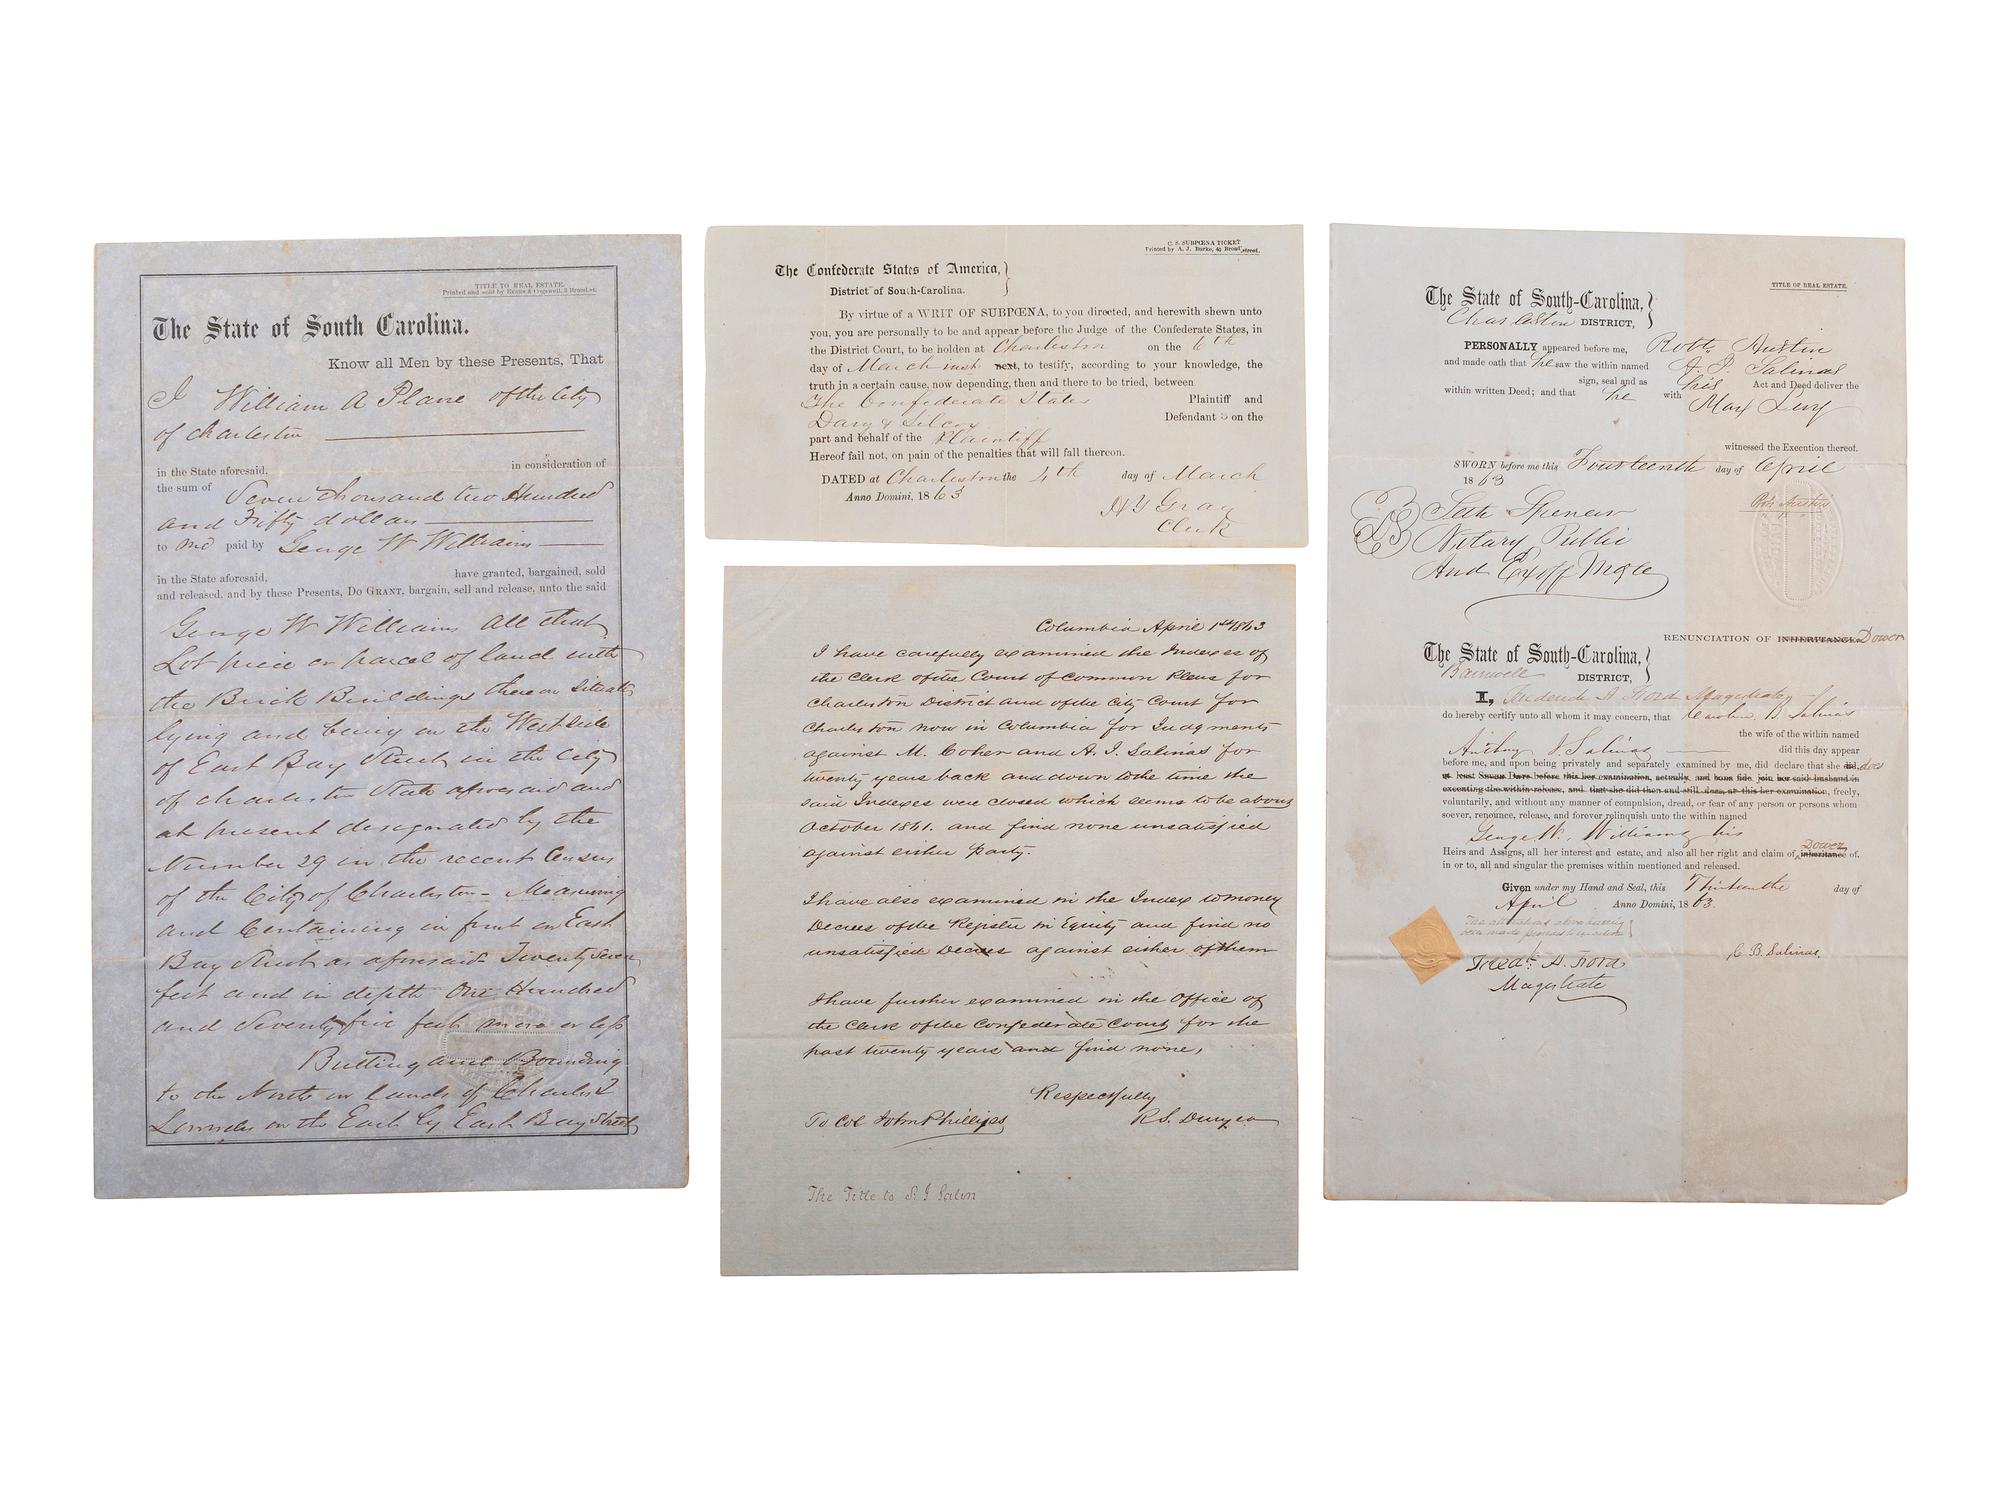 TITLE TO REAL ESTATE.
Printed and sold by Evans & Cogswell, 3 Broad-st.
The State of South Carolina.
Know all Men by these Presents, That
I William A Plane of the City
of Charleston
in the State aforesaid, in consideration of
the sum of Seven thousand two Hundred
and Fifty dollars
to me paid by George W Williams
in the State aforesaid, have granted, bargained, sold
and released, and by these Presents, Do GRANT, bargain, sell and release, unto the said
George W Williams All that
Lot piece or parcel of land with
the Brick Buildings thereon Situate
lying and being on the West side
of East Bay Street in the City
of Charleston State aforesaid and
at present designated by the
Number 29 in the recent Census
of the City of Charleston - Measuring
and Containing in front on East
Bay Street as aforesaid Twenty Seven
feet and in depth One Hundred
and Seventy five feet more or less
Butting and Bounding
to the North on Lands of Charles T
Lowndes on the East by East Bay Street
C. S. SUBPŒNA TICKET
Printed by A. J. Burke, 40 Broad street.
The Confederate States of America,
District of South-Carolina.
By virtue of a WRIT OF SUBPŒNA, to you directed, and herewith shewn unto
you, you are personally to be and appear before the Judge of the Confederate States, in
the District Court, to be holden at Charleston on the 6th
day of March inst next, to testify, according to your knowledge, the
truth in a certain cause, now depending, then and there to be tried, between
The Confederate States Plaintiff and
Dary & Silcox Defendant s on the
part and behalf of the Plaintiff
Hereof fail not, on pain of the penalties that will fall thereon.
DATED at Charleston the 4th day of March
Anno Domini, 1863
H Y Gray
Clerk
Columbia April 1st 1863
I have carefully examined the Indexes of
the Clerk of the Court of Common Pleas for
Charleston District and of the City Court for
Charleston now in Columbia for Judgments
against M. Coher and A. J. Salinas for
twenty years back and down to the time the
said Indexes were closed which seems to be about
October 1861. and find none unsatisfied
against either party.
I have also examined in the Index to money
Decrees of the Register in Equity and find no
unsatisfied Decrees against either of them
I have further examined in the Office of
the Clerk of the Confederate Court for the
past twenty years and find none,
Respectfully
To Col John Phillips R. S. Duryea
The Title to S. J Salin
TITLE OF REAL ESTATE.
The State of South-Carolina,
Charleston DISTRICT,
PERSONALLY appeared before me, Robt. Austin
and made oath that he saw the within named A. J. Salinas
sign, seal and as his Act and Deed deliver the
within written Deed; and that he with Max Levy
witnessed the Execution thereof.
SWORN before me this Fourteenth day of April
1863
Robt Austin
Seth Spencer
Notary Public
And Exoff Mgte
RENUNCIATION OF INHERITANCE. Dower
The State of South-Carolina,
Barnwell DISTRICT,
I, Frederick A Ford Magistrate
do hereby certify unto all whom it may concern, that Caroline B. Salinas
the wife of the within named
Anthony J. Salinas did this day appear
before me, and upon being privately and separately examined by me, did declare that she did, does
at least Seven Days before this her examination, actually and bona fide join her said husband in
executing the within release, and that she did then and still does, at this her examination, freely,
voluntarily, and without any manner of compulsion, dread, or fear of any person or persons whom
soever, renounce, release, and forever relinquish unto the within named
George W. Williams his
Heirs and Assigns, all her interest and estate, and also all her right and claim of Dower inheritance of,
in or to, all and singular the premises within mentioned and released.
Given under my Hand and Seal, this Thirteenth day of
April Anno Domini, 1863.
The alterations above having
been made previous to execution
C B Salinas
Fredk. A. Ford
Magistrate